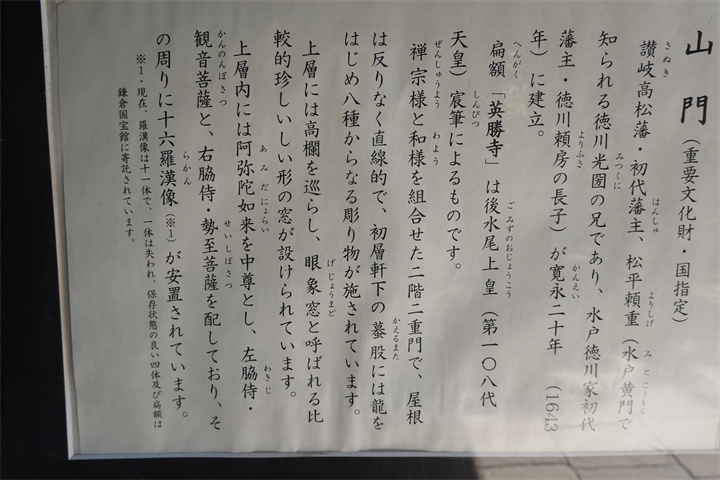 山門（重要文化財・国指定）
讃岐高松藩・初代藩主、松平頼重（水戸黄門で
知られる徳川光圀の兄であり、水戸徳川家初代
藩主・徳川頼房の長子）が寛永二十年（1643
年）に建立。
扁額「英勝寺」は後水尾上皇（第一〇八代
天皇）宸筆によるものです。
禅宗様と和様を組合せた二階二重門で、屋根
は反りなく直線的で、初層軒下の蟇股には龍を
はじめ八種からなる彫り物が施されています。
上層には高欄を巡らし、眼象窓と呼ばれる比
較的珍しいしい形の窓が設けられています。
上層内には阿弥陀如来を中尊とし、左脇侍・
観音菩薩と、右脇侍・勢至菩薩を配しており、そ
の周りに十六羅漢像（※1）が安置されています。
※1・現在、羅漢像は十一体で、一体は失われ、保存状態の良い四体及び扁額は
鎌倉国宝館に寄託されています。